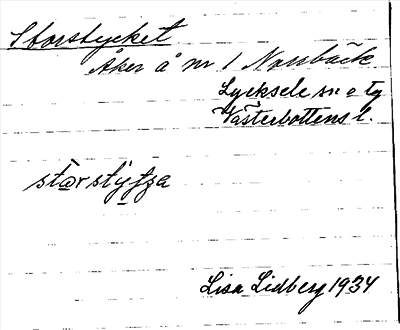 Storstycket
Åker å nr 1 Norrbäck
Lycksele sn o tg
Västerbottens l.
Lisa Lidberg 1934